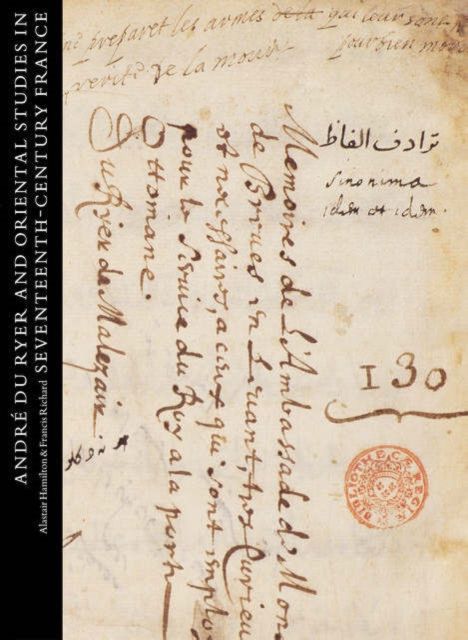 ANDRÉ DU RYER AND ORIENTAL STUDIES IN
SEVENTEENTH-CENTURY FRANCE
Alastair Hamilton & Francis Richard
preparet les armes qui leur sont
pour bien
verité de la
ترادف الفاظ
Sinonima
idem et idem.
130
BIBLIOTHECÆ REGIÆ
Memoires de L'Ambassade de Mon
de Breues en Leuant, tres Curieu
et necessaires, a ceux qui sont employ
pour le Seruice du Roy a la porte
Ottomane.
Du Ryer de Malezair